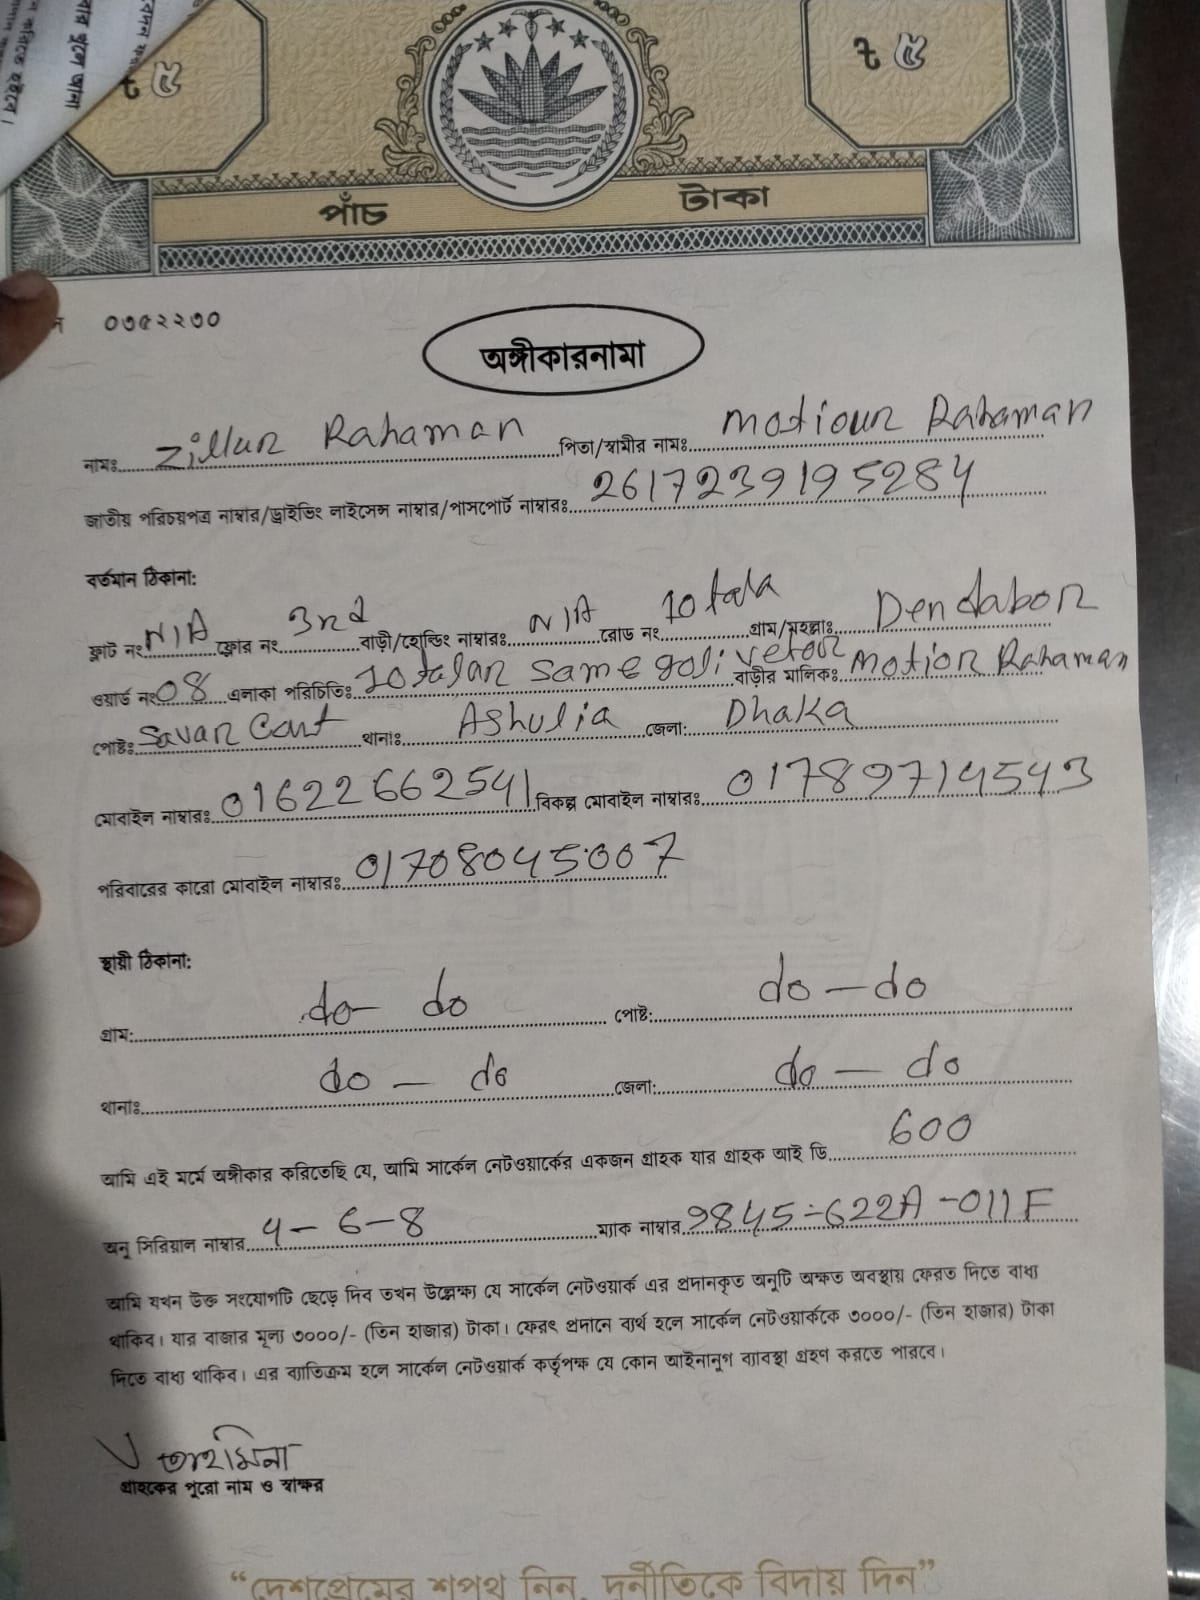 ৳ ৫
৳ ৫
পাঁচ টাকা
০৩৫২২৩০
অঙ্গীকারনামা
নামঃ Zillur Rahaman পিতা/স্বামীর নামঃ Motiour Rahaman
জাতীয় পরিচয়পত্র নাম্বার/ড্রাইভিং লাইসেন্স নাম্বার/পাসপোর্ট নাম্বারঃ 2617239195284
বর্তমান ঠিকানা:
ফ্লাট নংঃ N/A ফ্লোর নং 3rd বাড়ী/হোল্ডিং নাম্বারঃ N/A রোড নং 10 tala গ্রাম/মহল্লাঃ Dendabor
ওয়ার্ড নংঃ 08 এলাকা পরিচিতিঃ 10 talar same goli vetor বাড়ীর মালিকঃ Motior Rahaman
পোষ্টঃ Savar Cant থানাঃ Ashulia জেলা: Dhaka
মোবাইল নাম্বারঃ 01622662541 বিকল্প মোবাইল নাম্বারঃ 01789714543
পরিবারের কারো মোবাইল নাম্বারঃ 01708045007
স্থায়ী ঠিকানা:
গ্রাম: do - do পোষ্ট: do - do
থানাঃ do - do জেলা: do - do
আমি এই মর্মে অঙ্গীকার করিতেছি যে, আমি সার্কেল নেটওয়ার্কের একজন গ্রাহক যার গ্রাহক আই ডি 600
অনু সিরিয়াল নাম্বার 4-6-8 ম্যাক নাম্বার 9845-622A-011F
আমি যখন উক্ত সংযোগটি ছেড়ে দিব তখন উল্লেক্ষ্য যে সার্কেল নেটওয়ার্ক এর প্রদানকৃত অনুটি অক্ষত অবস্থায় ফেরত দিতে বাধ্য
থাকিব। যার বাজার মূল্য ৩০০০/- (তিন হাজার) টাকা। ফেরৎ প্রদানে ব্যর্থ হলে সার্কেল নেটওয়ার্ককে ৩০০০/- (তিন হাজার) টাকা
দিতে বাধ্য থাকিব। এর ব্যাতিক্রম হলে সার্কেল নেটওয়ার্ক কর্তৃপক্ষ যে কোন আইনানুগ ব্যাবস্থা গ্রহণ করতে পারবে।
তাহমিনা
গ্রাহকের পুরো নাম ও স্বাক্ষর
“দেশপ্রেমের শপথ নিন, দুর্নীতিকে বিদায় দিন”